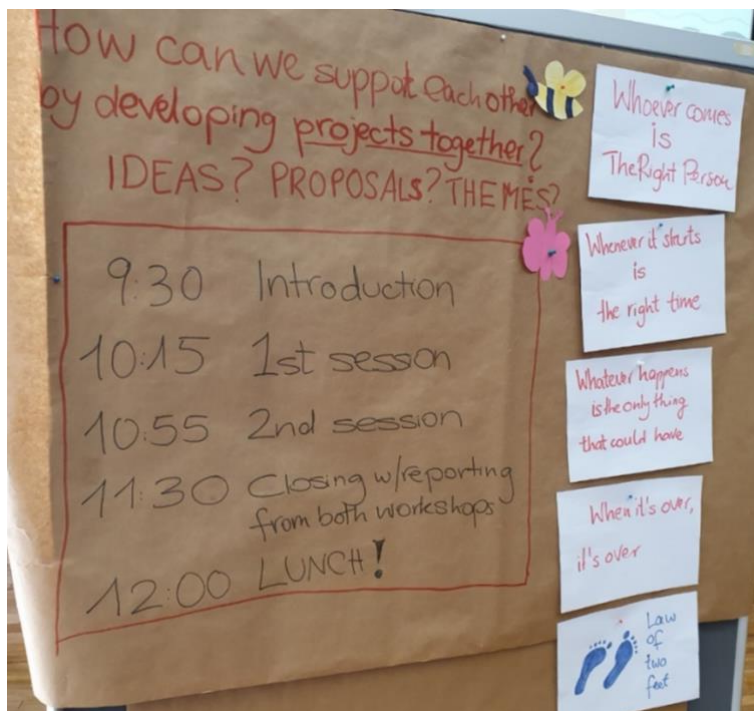 How can we support each other
by developing projects together?
IDEAS? PROPOSALS? THEMES?
9:30 Introduction
10:15 1st session
10:55 2nd session
11:30 Closing w/reporting
from both workshops
12:00 LUNCH!
Whoever comes
is
The Right Person
Whenever it starts
is
the right time
Whatever happens
is the only thing
that could have
When it's over,
it's over
Law
of
two
feet